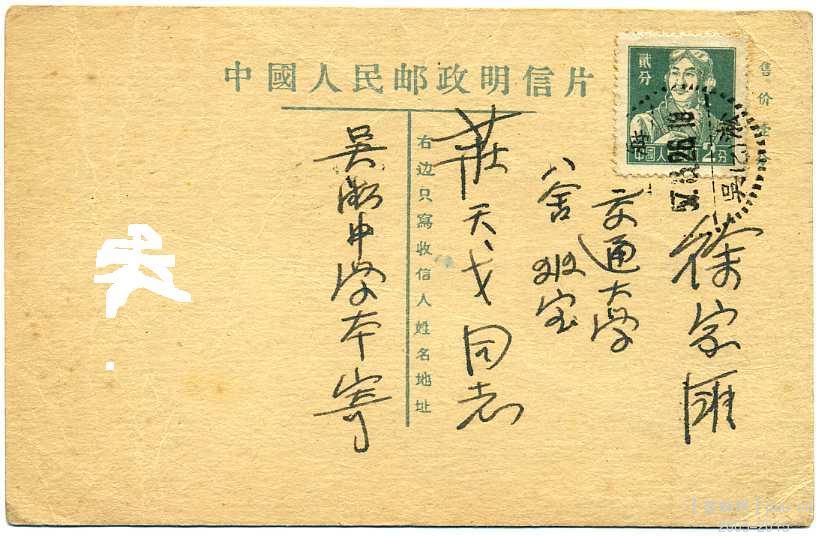 中國人民邮政明信片
售价壹
贰分
中國人民
2分
57.3.26.18
徐家匯
交通大学
八舍 212室
莊天戈同志
右边只寫收信人姓名地址
吴淞中学本寄